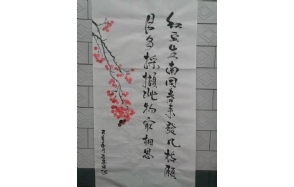 红豆生南国春来发几枝願
君多採擷此物最相思